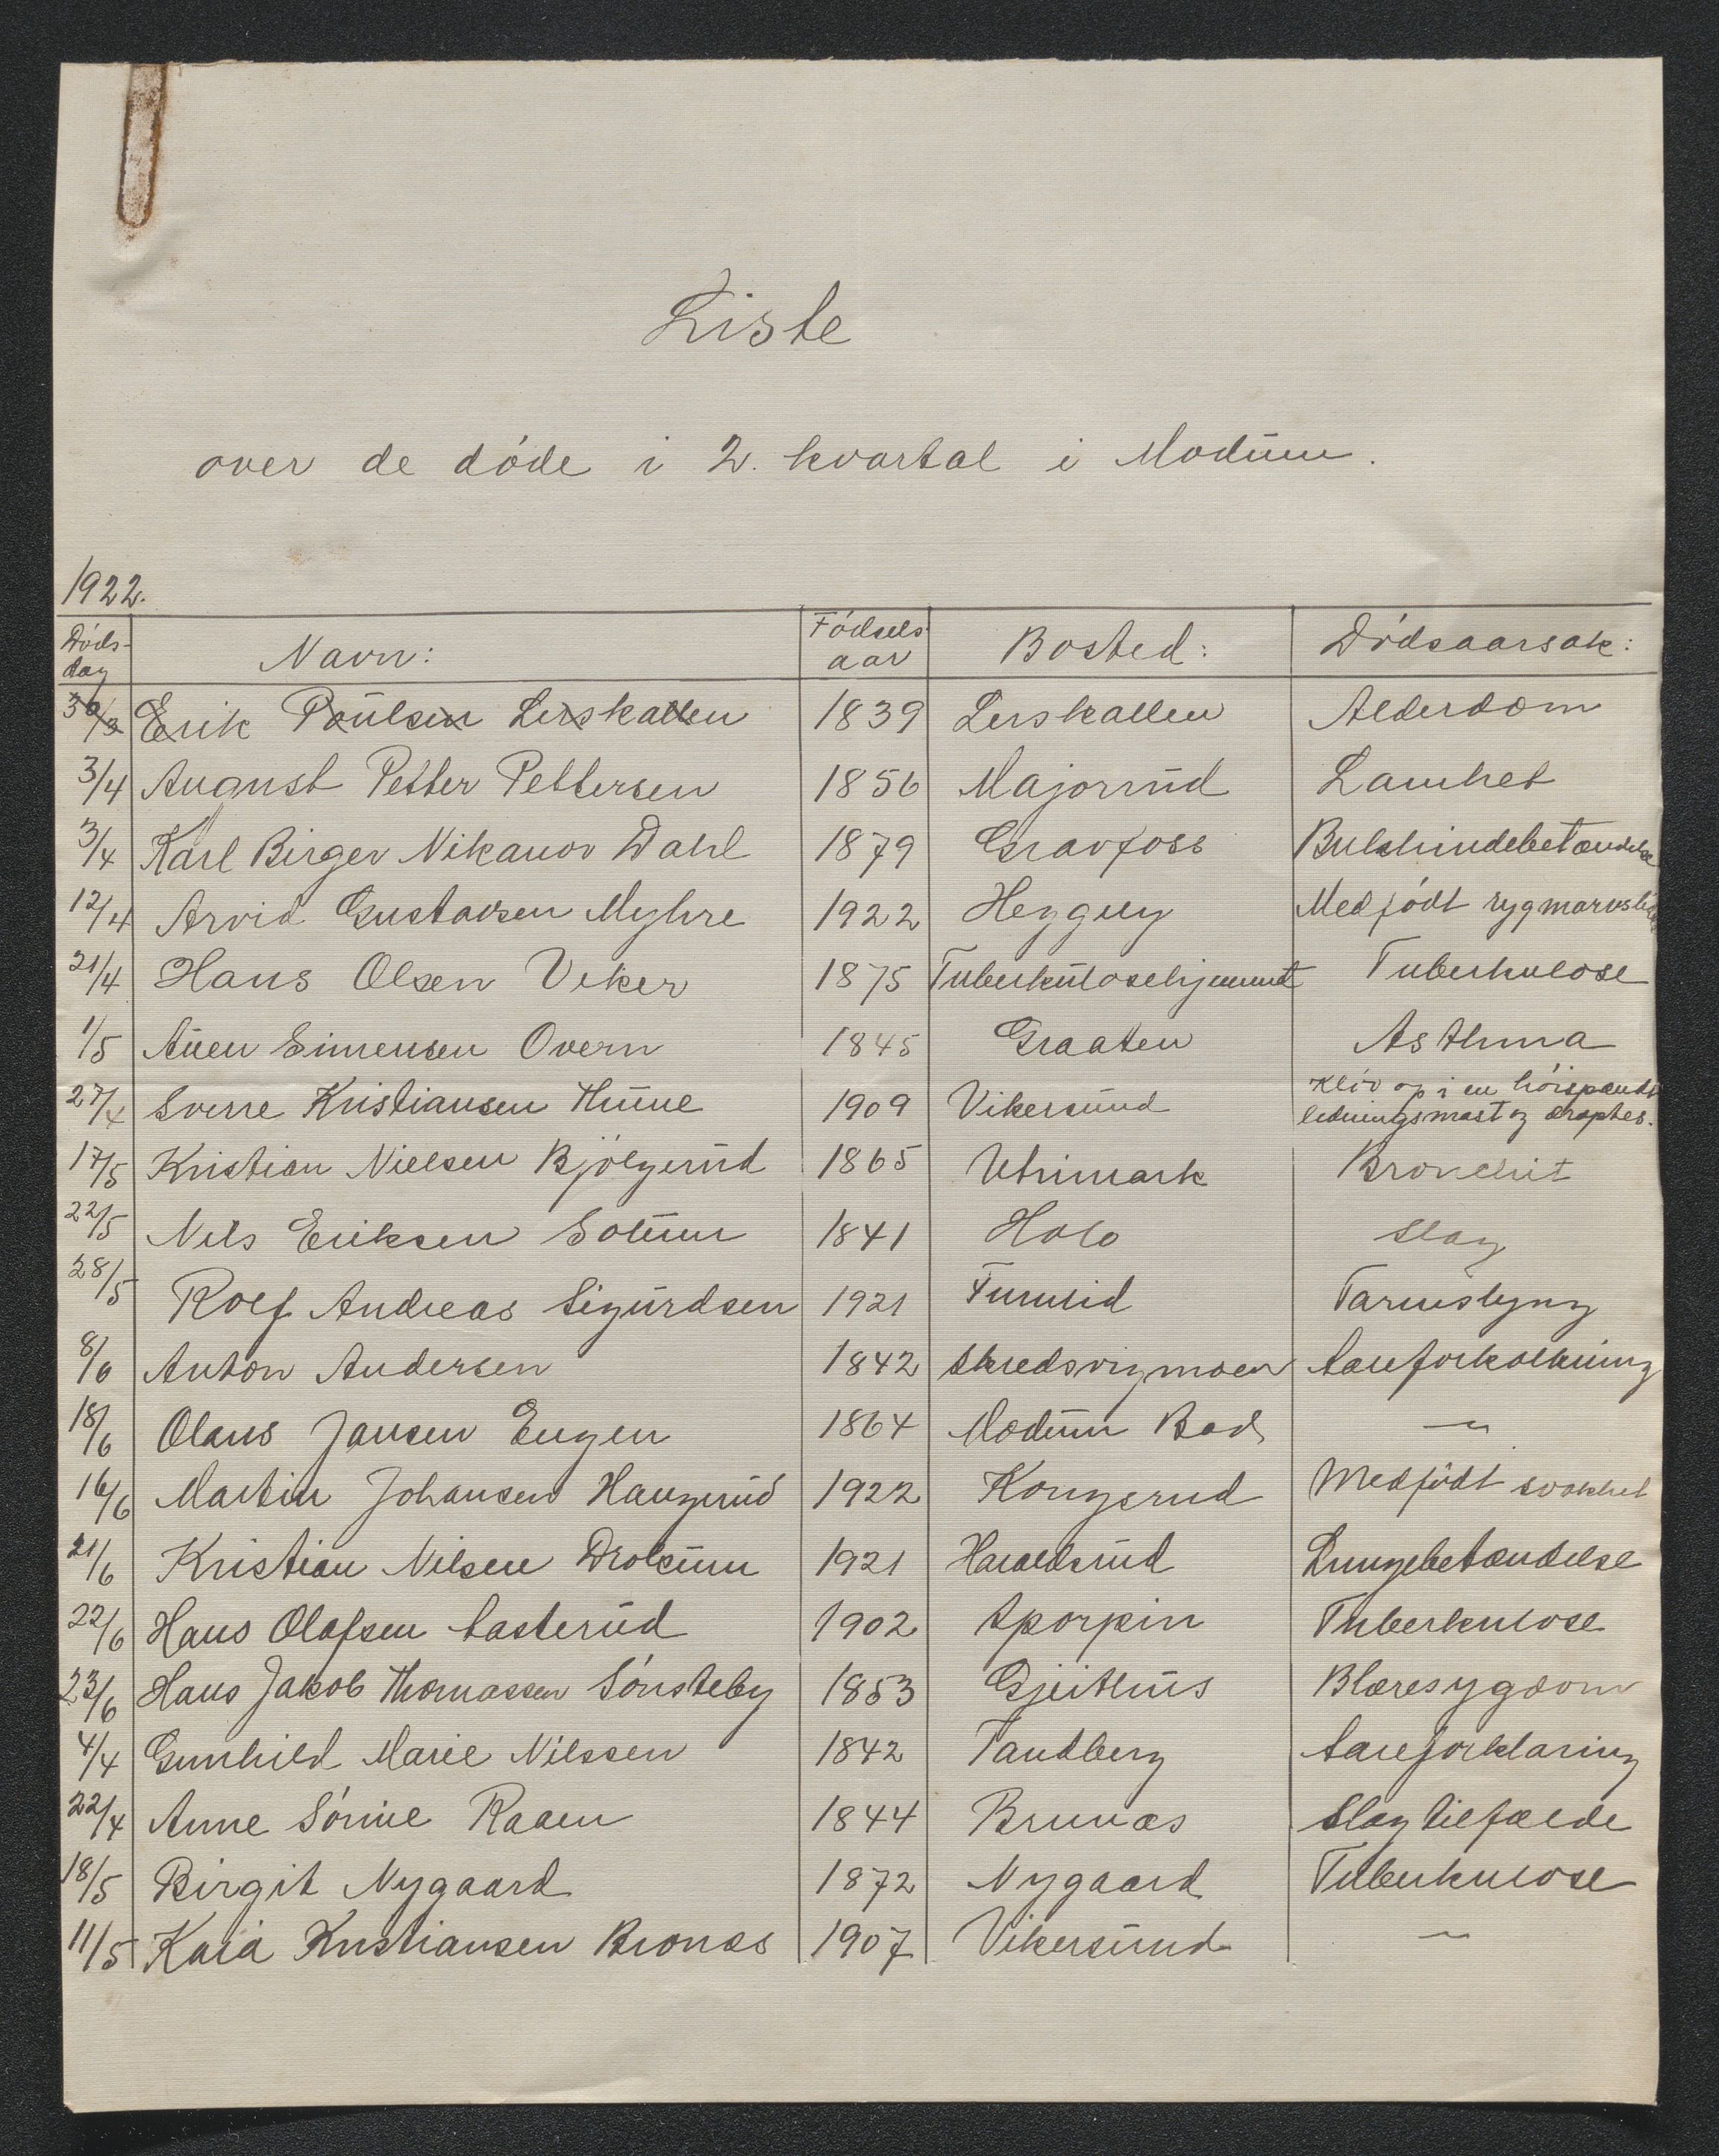 Liste
over de døde i 2. kvartal i Modum.
1922.
Døds-dag Navn: Fødsels aar Bosted: Dødsaarsak:
30/3 Erik Paulsen Lerskallen 1839 Lerskallen Alderdom
3/4 August Petter Pettersen 1856 Majorrud Lamhet
3/4 Karl Birger Nikanor Dahl 1879 Gravfoss Bukhindebetændelse
12/4 Arvid Gustavsen Myhre 1922 Heggen Medfødt rygmarvslidelse
21/4 Hans Olsen Viker 1875 Tuberkulosehjemmet Tuberkulose
1/5 Auen Simensen Overn 1845 Graaten Asthma
27/4 Sverre Kristiansen Hunne 1909 Vikersund Kløv op i en høispænds
ledningsmast og dræptes.
17/5 Kristian Nielsen Bjølgerud 1865 Utrimark Bronchit
22/5 Nils Eriksen Solum 1841 Holo Slag
28/5 Rolf Andreas Sigurdsen 1921 Furulid Tarmslyng
8/6 Anton Andersen 1842 Skredsvigmoen Aareforkalkning
18/6 Olaus Jansen Engen 1864 Modum Bad —
16/6 Martin Johansen Haugerud 1922 Kongerud Medfødt svakhet
21/6 Kristian Nilsen Drolsum 1921 Haraldsrud Lungebetændelse
22/6 Hans Olafsen Aasterud 1902 Sporpin Tuberkulose
23/6 Hans Jakob Thomassen Sønsteby 1853 Gjeithus Blæresygdom
4/4 Gunhild Marie Nilssen 1842 Tandberg Aareforklaring
22/4 Anne Sørine Raaen 1844 Brunæs Slagtilfælde
18/5 Birgit Nygaard 1872 Nygaard Tuberkulose
11/5 Kaia Kristiansen Bronæs 1907 Vikersund —